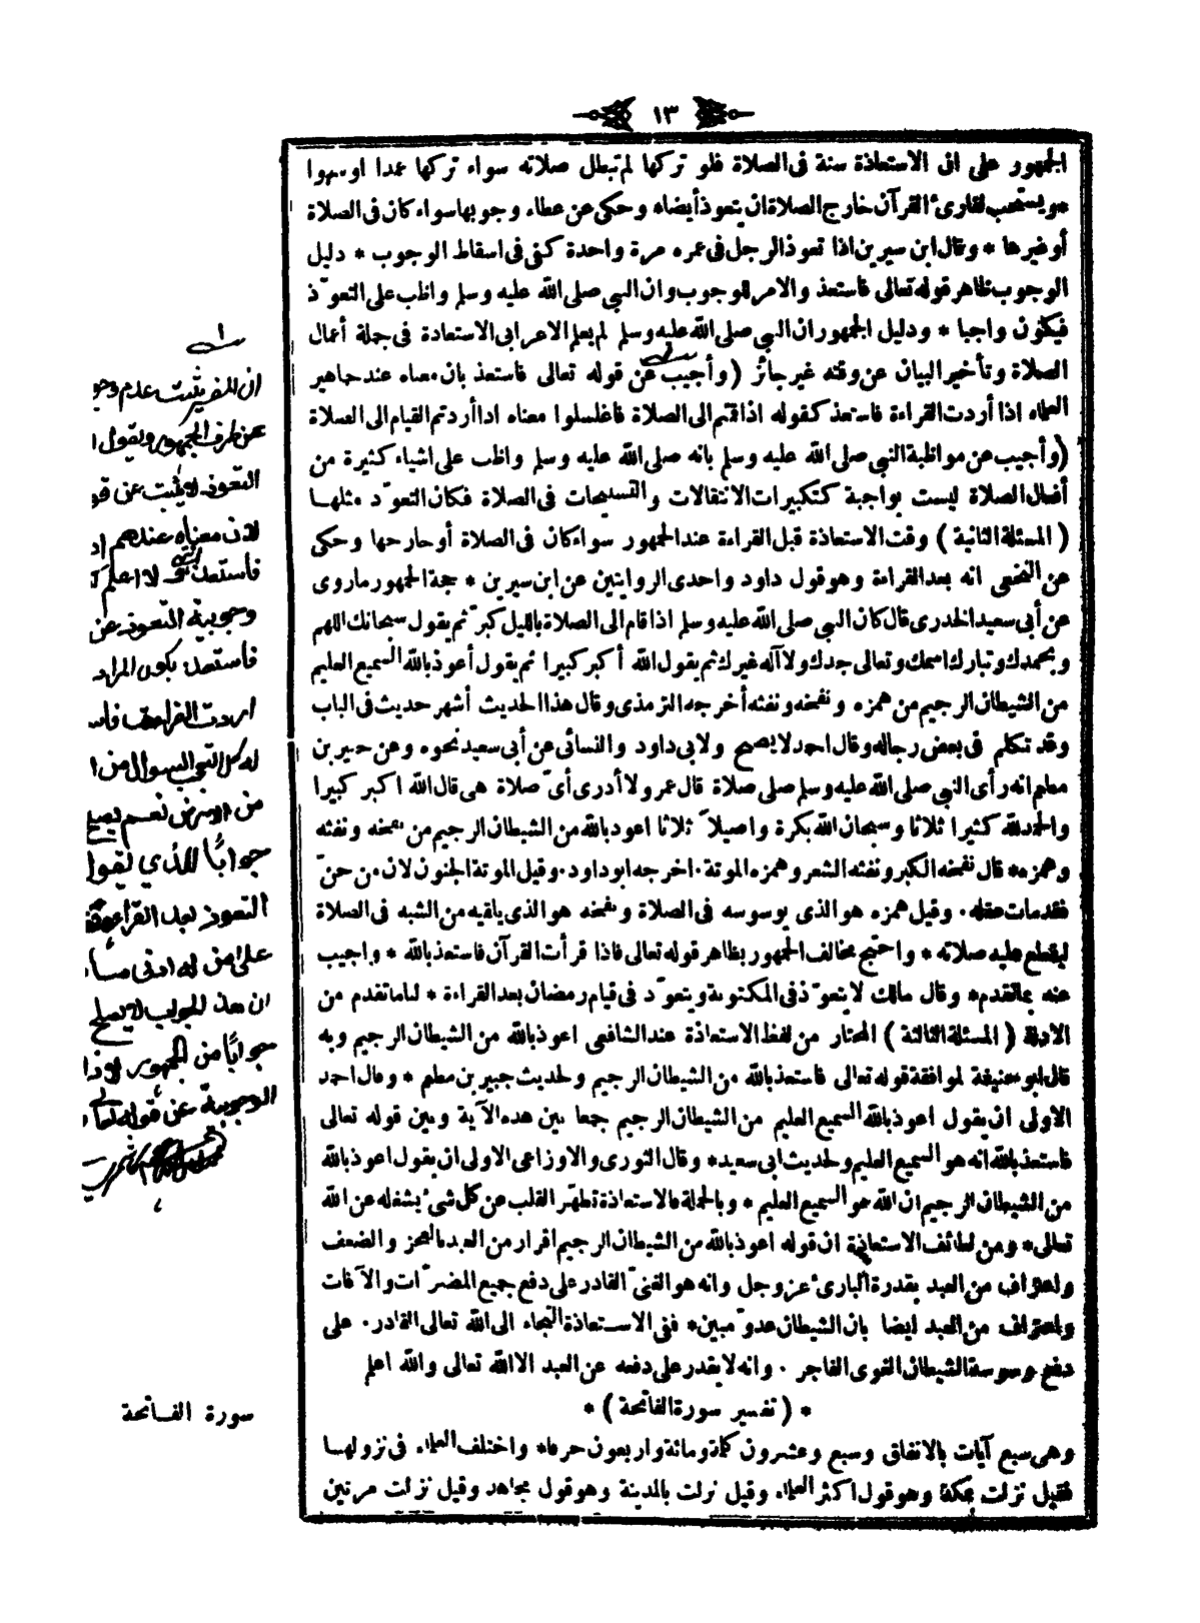 ١٣
الجمهور على ان الاستعاذة سنة فى الصلاة فلو تركها لم تبطل صلاته سواء تركها عمدا اوسهوا
*ويستحب لقارئ القرآن خارج الصلاة ان يتعوذ أيضا* وحكى عن عطاء وجوبها سواء كان فى الصلاة
أوغيرها * وقال ابن سيرين اذا تعوذ الرجل فى عمره مرة واحدة كفى فى اسقاط الوجوب * دليل
الوجوب ظاهر قوله تعالى فاستعذ والامر للوجوب وان النبى صلى الله عليه وسلم واظب على التعوّذ
فيكون واجبا * ودليل الجمهور ان النبى صلى الله عليه وسلم لم يعلم الاعرابى الاستعاذة فى جملة أعمال
الصلاة وتأخير البيان عن وقته غير جائز (وأجيب عن قوله تعالى فاستعذ بان معناه عند جماهير
العلماء اذا أردت القراءة فاستعذ كقوله اذا قمتم الى الصلاة فاغسلوا معناه اذا أردتم القيام الى الصلاة
(وأجيب عن مواظبة النبى صلى الله عليه وسلم بانه صلى الله عليه وسلم واظب على اشياء كثيرة من
أفعال الصلاة ليست بواجبة كتكبيرات الانتقالات والتسبيحات فى الصلاة فكان التعوّذ مثلها
( المسئلة الثانية ) وقت الاستعاذة قبل القراءة عند الجمهور سواء كان فى الصلاة أوخارجها وحكى
عن النخعى انه بعد القراءة وهو قول داود واحدى الروايتين عن ابن سيرين * حجة الجمهور ماروى
عن أبى سعيد الخدرى قال كان النبى صلى الله عليه وسلم اذا قام الى الصلاة بالليل كبرّ ثم يقول سبحانك اللهم
وبحمدك وتبارك اسمك وتعالى جدك ولا آله غيرك ثم يقول الله أكبر كبيرا ثم يقول أعوذ بالله السميع العليم
من الشيطان الرجيم من همزه ونفخه ونفثه أخرجه الترمذى وقال هذا الحديث أشهر حديث فى الباب
وقد تكلم فى بعض رجاله وقال احمد لا يصح ولابى داود والنسائى عن أبى سعيد نحوه وعن جبير بن
مطعم انه رأى النبى صلى الله عليه وسلم صلى صلاة قال عمر ولا أدرى أىّ صلاة هى قال الله اكبر كبيرا
والحمد لله كثيرا ثلاثا وسبحان الله بكرة واصيلاً ثلاثا اعوذ بالله من الشيطان الرجيم من نفخه ونفثه
وهمزه* قال نفخه الكبر ونفثه الشعر وهمزه الموتة. اخرجه ابوداود. وقيل الموتة الجنون لان من جنّ
فقد مات عقله. وقيل همزه هو الذى يوسوسه فى الصلاة ونفخه هو الذى يلقيه من الشبه فى الصلاة
ليقطع عليه صلاته * واحتج مخالف الجمهور بظاهر قوله تعالى فاذا قرأت القرآن فاستعذ بالله * واجيب
عنه بما تقدم* وقال مالك لا يتعوّذ فى المكتوبة ويتعوّذ فى قيام رمضان بعد القراءة * لنا ما تقدم من
الادلة ( المسئلة الثالثة ) المختار من لفظ الاستعاذة عند الشافعى اعوذ بالله من الشيطان الرجيم وبه
قال ابوحنيفة لموافقة قوله تعالى فاستعذ بالله من الشيطان الرجيم ولحديث جبير بن مطعم * وقال احمد
الاولى ان يقول اعوذ بالله السميع العليم من الشيطان الرجيم جمعا بين هذه الآية وبين قوله تعالى
فاستعذ بالله انه هو السميع العليم ولحديث ابى سعيد* وقال الثورى والاوزاعى الاولى ان يقول اعوذ بالله
من الشيطان الرجيم ان الله هو السميع العليم * وبالجملة فالاستعاذة تطهّر القلب عن كل شئ يشغله عن الله
تعالى* ومن لطائف الاستعاذة ان قوله اعوذ بالله من الشيطان الرجيم اقرار من العبد بالعجز والضعف
واعتراف من العبد بقدرة البارئ عز وجل وانه هو الغنىّ القادر على دفع جميع المضرّات والآفات
واعتراف من العبد ايضا بان الشيطان عدوّ مبين* ففى الاستعاذة التجاء الى الله تعالى القادر. على
دفع وسوسة الشيطان الغوى الفاجر . وانه لا يقدر على دفعه عن العبد الا الله تعالى والله اعلم
* ( تفسير سورة الفاتحة ) *
وهى سبع آيات بالاتفاق وسبع وعشرون كلمة ومائة واربعون حرفا* واختلف العلماء فى نزولها
فقيل نزلت بمكة وهو قول اكثر العلماء وقيل نزلت بالمدينة وهو قول مجاهد وقيل نزلت مرتين
١
عن طرف الجمهور ويقول
لان معناه عندهم
وجوبية التعوذ عن
فاستعذ يكون المراد
اردت القراءة
جوابًا للذي يقول
التعوذ بعد القراءة
على من له ادنى
ان هذا الجواب لا يصلح
جوابًا من الجمهور
الوجوبية عن قوله تعالى
سورة الفاتحة